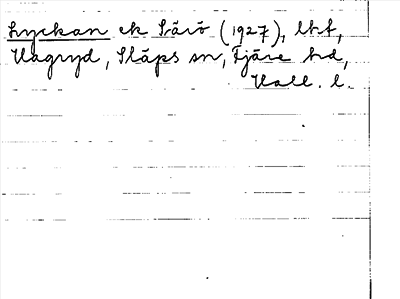 Lyckan ek Särö (1927), lht,
Vagryd, Släps sn, Fjäre hd,
Hall. l.